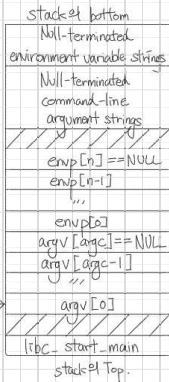 stack of bottom
Null-terminated
environment variable strings
Null-terminated
command-line
argument strings
envp[n]==NULL
envp[n-1]
...
envp[0]
argv[argc]==NULL
argv[argc-1]
...
argv[0]
libc_start_main
stack of Top.